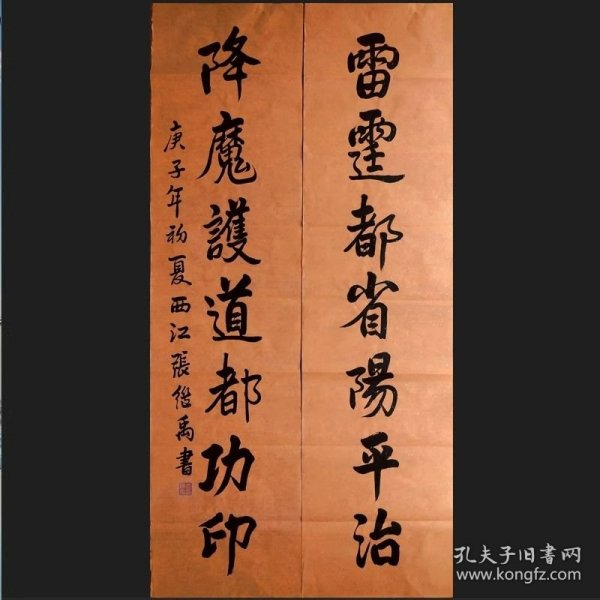 雷霆都省陽平治
降魔護道都功印
庚子年初夏西江張继禹書
孔夫子旧书网
www.kongfz.com